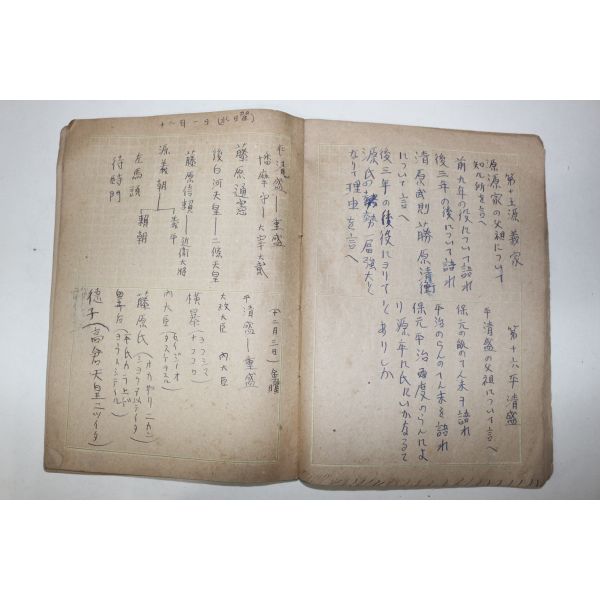 第十五源義家
源義家の父祖について
知れ所を言へ
前九年の役について語れ
後三年の役について語れ
清原武則 藤原清衡
について言へ
後三年の役後にヨりて
源氏の勢一層強大と
なりて理由を言へ
第十六平清盛
平清盛の父祖について言へ
保元の乱のてん末ヲ語れ
平治のらんのてん末を語れ
保元平治両度のらんによ
り源平に氏にいかなるて
とありしか
十二月一日(水曜)
清盛―重盛
播摩守―大宰大貳
藤原通憲
後白河天皇―二條天皇
藤原信頼―近衛大将
源義朝
義平
頼朝
左馬頭
待賢門
十二月三日 金曜
平清盛―重盛
太政大臣 内大臣
横暴
内大臣
藤原氏
皇后
徳子(高倉天皇ニツイタ)